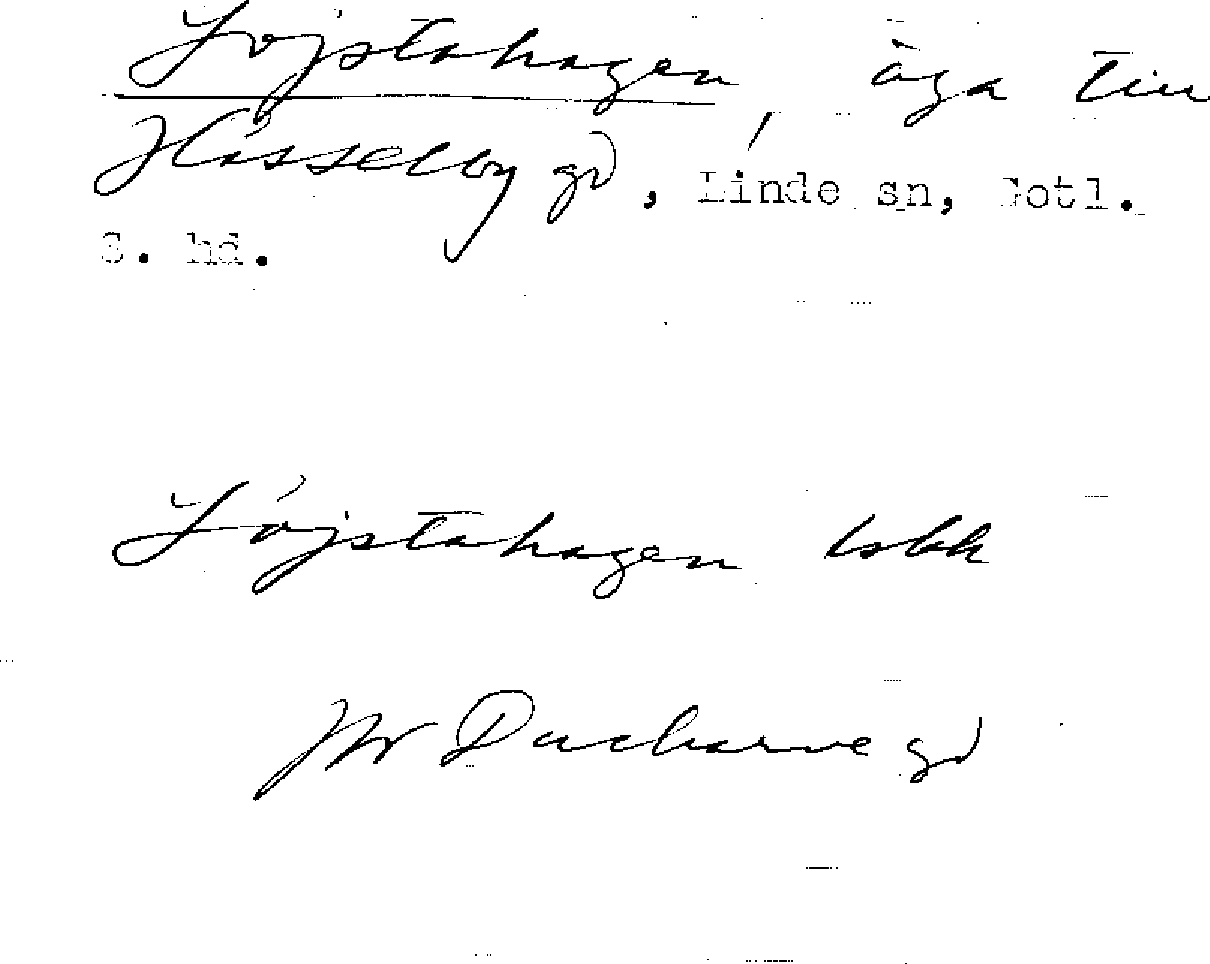 Lojstahagen, äga till
Hässelby gd, Linde sn, Gotl.
S. hd.
Lojstahagen lskk
Duckarve gd